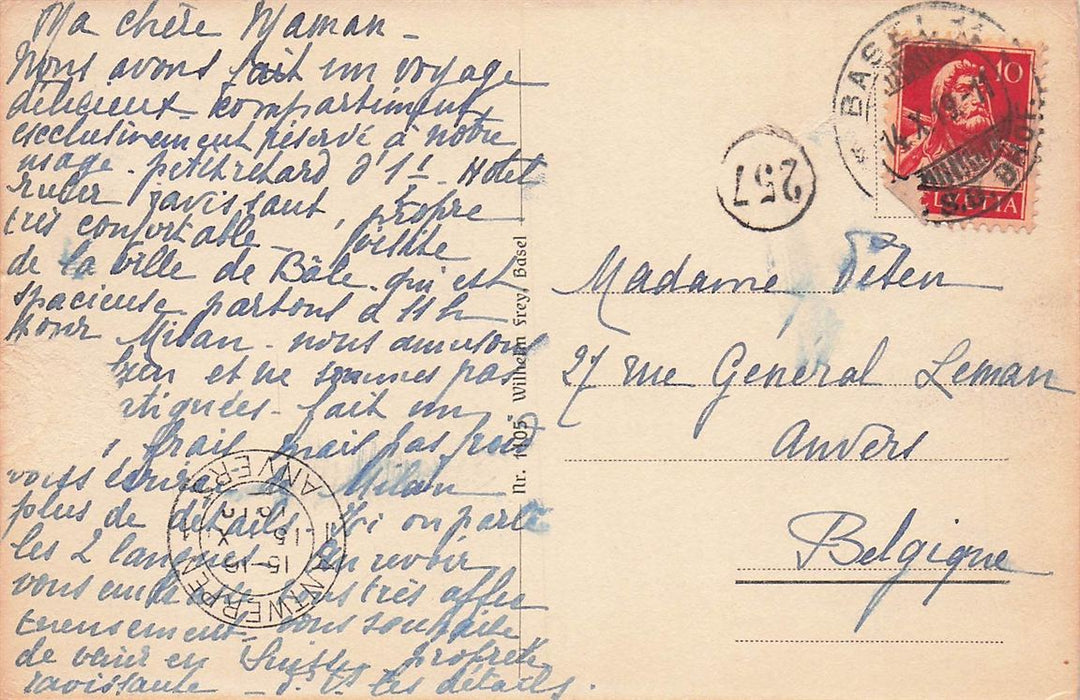 Ma chère Maman -
Nous avons fait un voyage
délicieux - compartiment
exclusivement réservé à notre
usage - petit retard d'1h - Hotel
ravissant, propre
très confortable - visite
de la ville de Bâle - qui est
spacieuse - partons à 11 h
pour Milan - nous amusons
bien et ne sommes pas
tiguées - fait un
frais mais pas froid
vous écrirai de Milan
plus de détails - Ici on parle
les 2 langues - Au revoir
vous embrasse tous très affec
tueusement - vous souhaite
de venir en Suisse, propreté
ravissante - les détails.
Nr. 1105 Wilhelm Frey, Basel
257
BASEL
14.X.19-11
10
HELVETIA
Madame Peten
27 rue Général Leman
Anvers
Belgique
ANTWERPEN 1
ANVERS
15-16
15
X